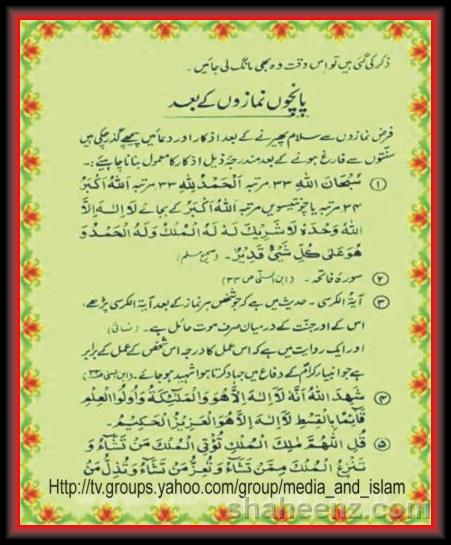 ذکر کی گئی ہیں تو اس وقت وہ بھی مانگ لی جائیں۔
پانچوں نمازوں کے بعد
فرض نمازوں سے سلام پھیرنے کے بعد اذکار اور دعائیں پیچھے گذر چکی ہیں
سنتوں سے فارغ ہونے کے بعد مندرجہ ذیل اذکار کا معمول بنانا چاہیئے:۔
① سُبْحَانَ اللهِ ۳۳ مرتبہ اَلْحَمْدُ لِلّٰهِ ۳۳ مرتبہ اَللهُ اَكْبَرُ
۳۴ مرتبہ یا چونتیسویں مرتبہ اَللهُ اَكْبَرُ کے بجائے لَآ اِلٰهَ اِلَّا
اللهُ وَحْدَهٗ لَا شَرِيْكَ لَهٗ لَهُ الْمُلْكُ وَلَهُ الْحَمْدُ وَ
هُوَ عَلٰى كُلِّ شَيْءٍ قَدِيْرٌ۔ (صحیح مسلم)
② سورۂ فاتحہ۔ (ابن السنی ص ۳۴)
③ آیۃ الکرسی۔ حدیث میں ہے کہ جو شخص ہر نماز کے بعد آیۃ الکرسی پڑھے،
اس کے اور جنت کے درمیان صرف موت حائل ہے۔ (نسائی)
اور ایک روایت میں ہے کہ اس عمل کا درجہ اس شخص کے عمل کے برابر
ہے جو انبیاء کرامؑ کے دفاع میں جہاد کرتا ہوا شہید ہو جائے۔ (ابن السنی ص
④ شَهِدَ اللهُ اَنَّهٗ لَآ اِلٰهَ اِلَّا هُوَ وَالْمَلٰٓئِكَةُ وَاُولُوا الْعِلْمِ
قَآئِمًا بِالْقِسْطِ لَآ اِلٰهَ اِلَّا هُوَ الْعَزِيْزُ الْحَكِيْمُ۔
⑤ قُلِ اللّٰهُمَّ مٰلِكَ الْمُلْكِ تُؤْتِي الْمُلْكَ مَنْ تَشَآءُ وَ
تَنْزِعُ الْمُلْكَ مِمَّنْ تَشَآءُ وَتُعِزُّ مَنْ تَشَآءُ وَتُذِلُّ مَنْ
Http://tv.groups.yahoo.com/group/media_and_islam
shaheenz.com